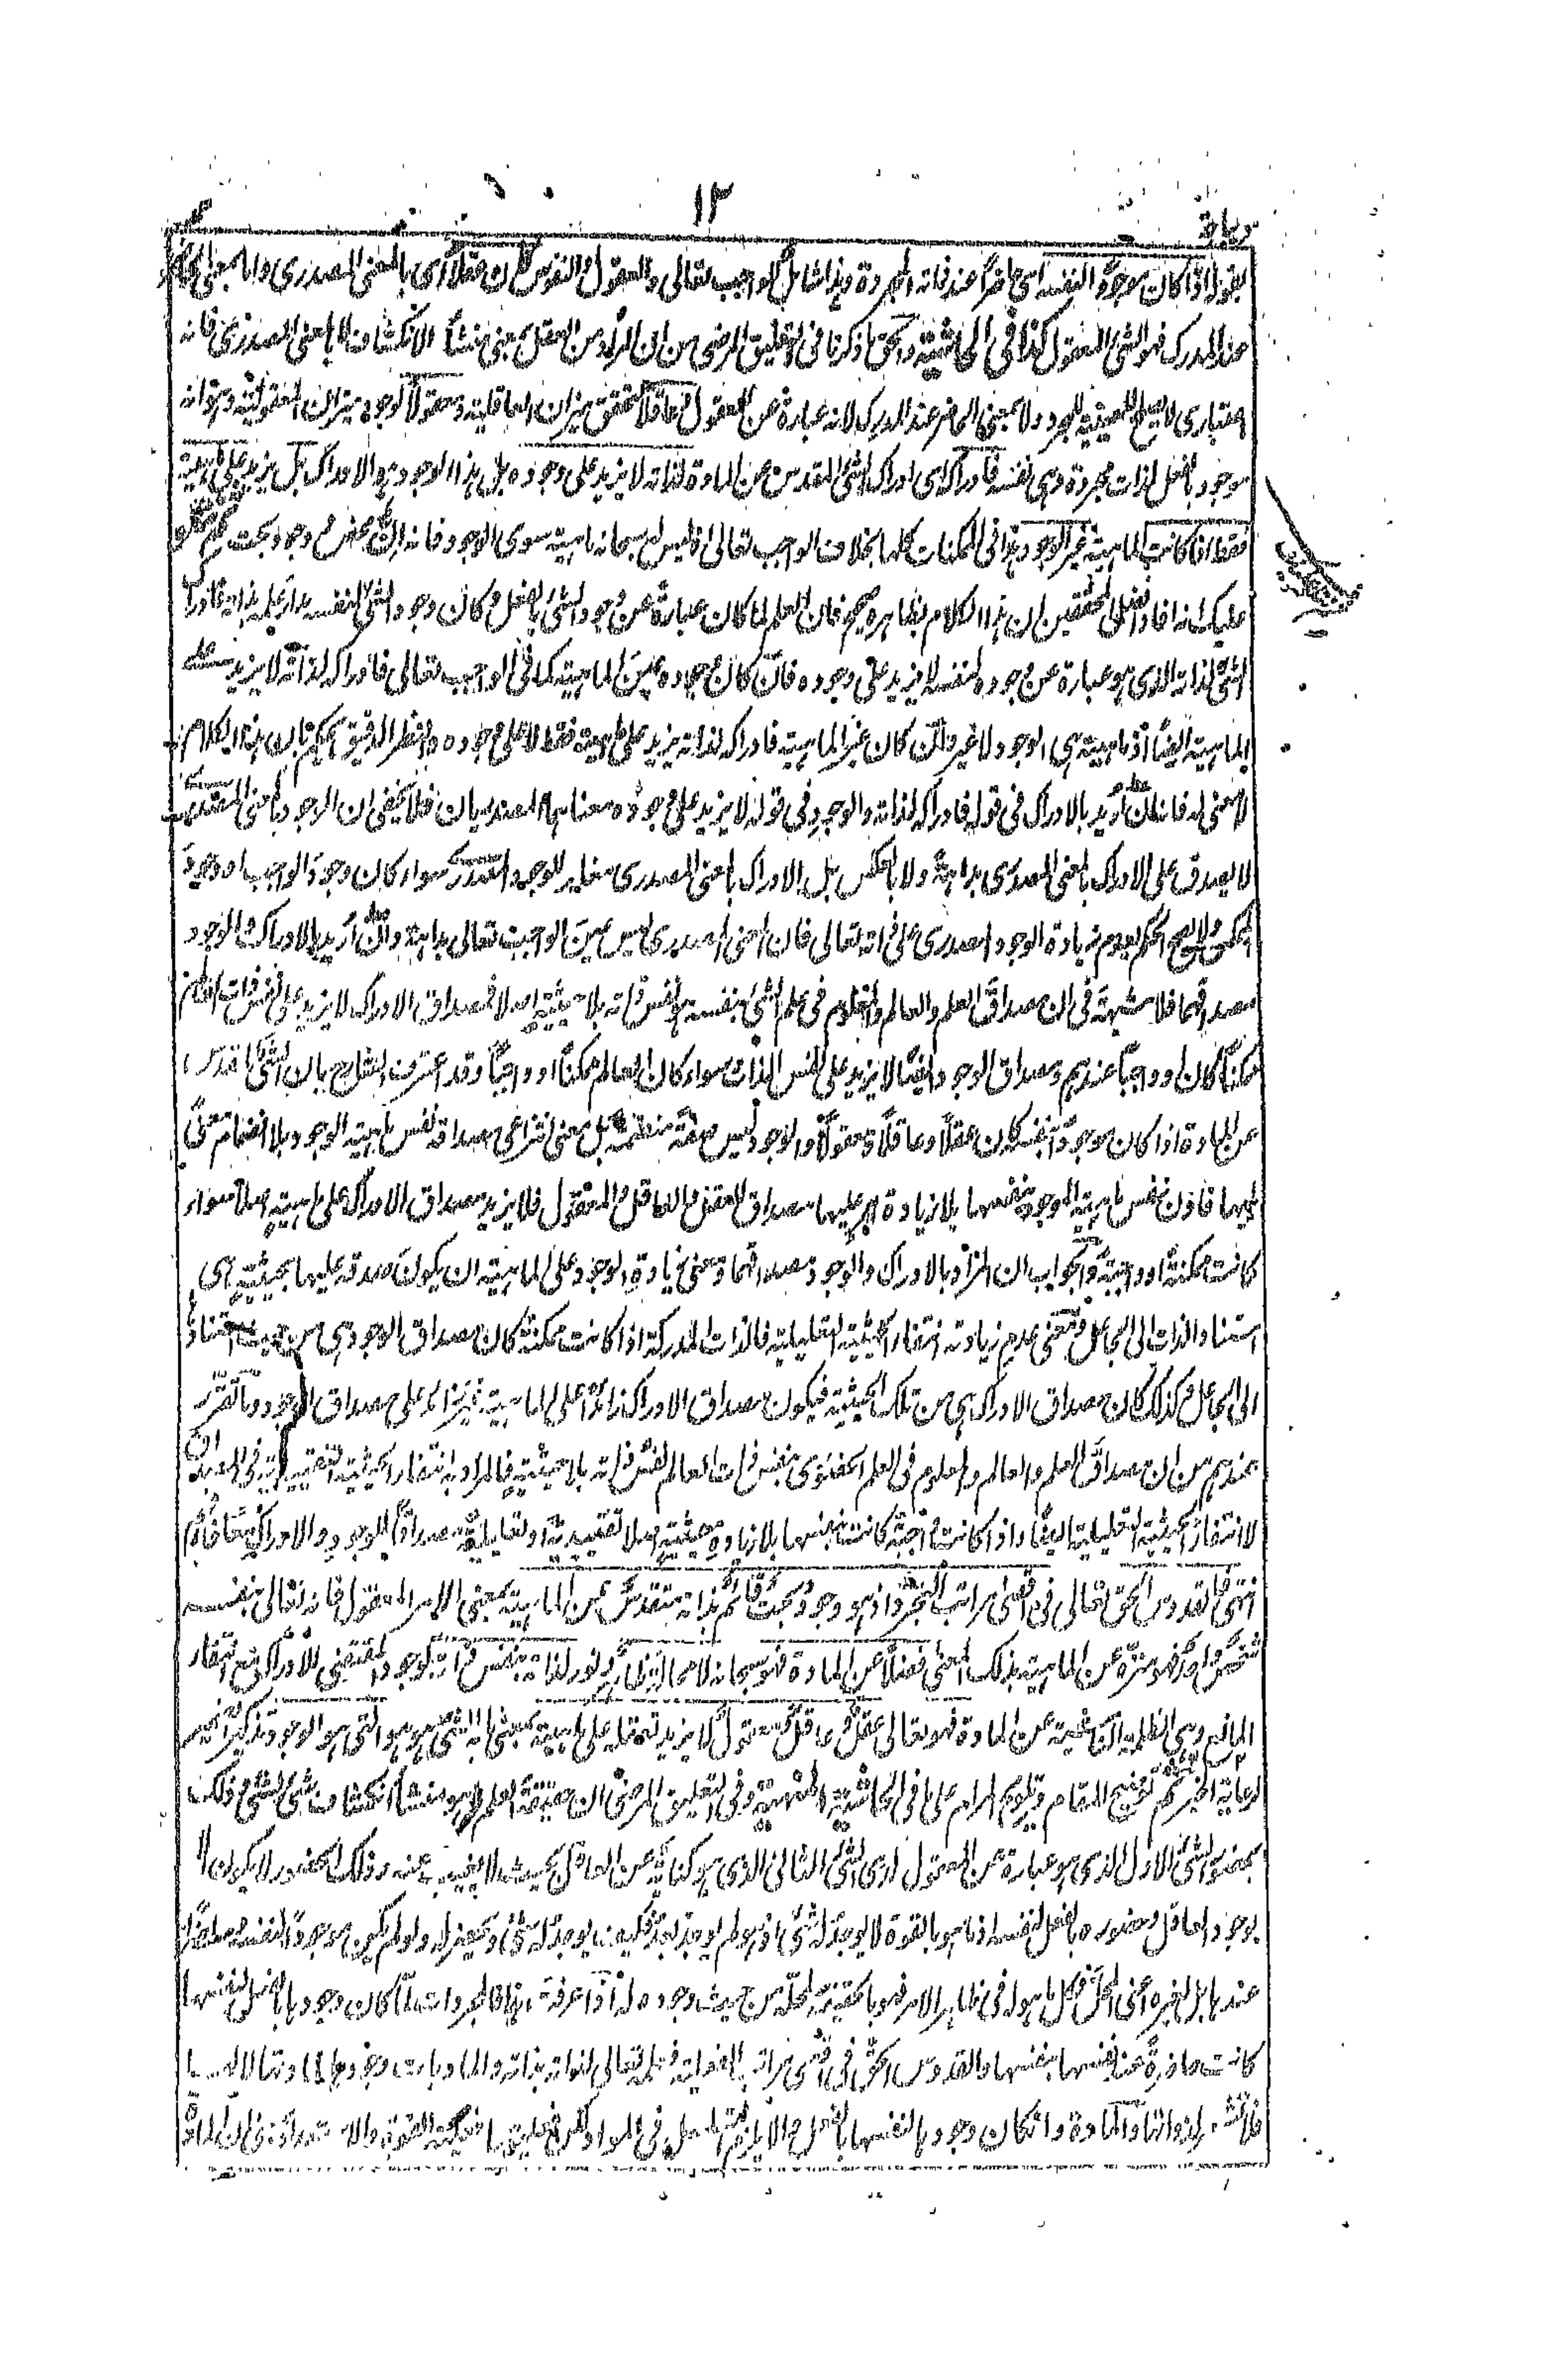 ١٢
بقوله اذا كان موجودًا لنفسه اى حاضرًا عند ذاته المجردة وهذا شامل للواجب تعالى والعقول والنفوس كان عقلًا اى بالمعنى المصدرى واما بمعنى الحاضر
عند المدرك فهو الشئ المعقول كذا فى الحاشية والحق ما ذكرنا فى التعليق المرضى من ان المراد من العقل بمعنى منشأ الانكشاف لا بالمعنى المصدرى فانه
اعتبارى لا يصلح للعينية للمجرد ولا بمعنى الحاضر عند المدرك لانه عبارة عن المعقول وعاقلًا لتحقق ميزان العاقلية ومعقولًا لوجود ميزان المعقولية وهو انه
موجود بالفعل لذات مجردة وهى نفسه فادراك اى ادراك الشئ المقدس عن المادة لذاته لا يزيد على وجوده بل هذا الوجود هو الادراك بل يزيد على ماهيته
فقط اذا كانت الماهية غير الوجود وهذا فى الممكنات كلها بخلاف الواجب تعالى اذ ليس له سبحانه ماهية سوى الوجود فانه وجود بحت
عليك انه افاد بعض المحققين ان هذا الكلام بظاهره صحيح فان العلم لما كان عبارة عن وجود الشئ بالفعل وكان وجود الشئ لنفسه مدار علمه بذاته فادراك
الشئ لذاته الذى هو عبارة عن وجوده لنفسه لا يزيد على وجوده فان كان وجوده عين الماهية كما فى الواجب تعالى فادراكه لذاته لا يزيد على
الماهية ايضًا اذ ماهيته هى الوجود لا غير وان كان غير الماهية فادراكه لذاته يزيد على ماهيته فقط لا على وجوده والنظر الدقيق يحكم بان هذا الكلام
لا معنى له فانه ان اريد بالادراك فى قوله فادراكه لذاته والوجود فى قوله لا يزيد على وجوده معناهما المصدريان فلا يخفى ان الوجود بالمعنى المصدرى
لا يصدق على الادراك بالمعنى المصدرى بداهة ولا بالعكس بل الادراك بالمعنى المصدرى مغاير للوجود المصدرى سواء كان وجود الواجب او وجود
الممكن ولا يصح الحكم بعدم زيادة الوجود المصدرى على ذاته تعالى فان المعنى المصدرى ليس عين الواجب تعالى بداهة وان اريد بالادراك والوجود
مصداقهما فلا شبهة فى ان مصداق العلم والعالم والمعلوم فى علم الشئ بنفسه هو نفس ذاته بلا حيثية اصلا فمصداق الادراك لا يزيد على نفس ذات العالم
ممكنًا كان او واجبًا عندهم ومصداق الوجود ايضًا لا يزيد على نفس الذات سواء كان العالم ممكنًا او واجبًا وقد اعترف الشارح بان الشئ المقدس
عن المادة اذا كان موجودًا لنفسه كان عقلًا وعاقلًا ومعقولًا والوجود ليس صفة منضمة بل معنى انتزاعى مصداقه نفس ماهية الوجود بلا انضمام معنى
اليها فاذن نفس ماهية الموجود بنفسها بلا زيادة امر عليها مصداق للعقل والعاقل والمعقول فلا يزيد مصداق الادراك على ماهية اصلا سواء
كانت ممكنة او واجبة والجواب ان المراد بالادراك والوجود مصداقهما ومعنى زيادة الوجود على الماهية ان يكون صدقه عليها بحيثية هى
استناد الذات الى الجاعل ومعنى عدم زيادته انتفاء الحيثية التعليلية فالذات المدركة اذا كانت ممكنة كان مصداق الوجود هى من حيث استنادها
الى الجاعل وكذلك كان مصداق الادراك هى من تلك الحيثية فيكون مصداق الادراك زائدًا على الماهية غير زائد على مصداق الوجود وما تقرر
عندهم من ان مصداق العلم والعالم والمعلوم فى العلم الحضورى بنفس ذات العالم نفس ذاته بلا حيثية فالمراد به انتفاء الحيثية التقييدية فى المصداق
لا انتفاء الحيثية التعليلية ايضًا واذا كانت واجبة كانت بنفسها بلا زيادة حيثية اصلا تقييدية او تعليلية مصداقًا للوجود والادراك معًا فافهم
انتهى فالقدوس الحق تعالى فى اقصى مراتب التجرد اذ هو وجود بحت قائم بذاته متقدس عن الماهية بمعنى الامر المعقول فانه تعالى بنفسه
متشخص فهو منزه عن الماهية بذلك المعنى فضلًا عن المادة فهو سبحانه لا محالة ظاهر ونور لذاته بنفس ذاته لوجود المقتضى للادراك مع انتفاء
المانع وهى الظلمة الناشئة عن المادة فهو تعالى عقل وعاقل ومعقول لا يزيد تعقله على ماهيته بمعنى ما به الشئ هو هو التى هو الوجود وتذكير الضمير
لرعاية الخبر ثم تنقيح المقام وتلويح المرام على ما فى الحاشية المنهية وفى التعليق المرضى ان حقيقة العلم هو منشأ انكشاف شئ لشئ وذلك
بحضور الشئ الاول الذى هو عبارة عن المعقول لدى الشئ الثانى الذى هو كناية عن العاقل بحيث لا يغيب عنه وذلك الحضور لا يكون الا
بوجود العاقل وحضوره بالفعل لنفسه اذ ما هو بالقوة لا يوجد له شئ اذ هو لم يوجد بعد فكيف يوجد له شئ ويحضر له ولو لم يكن موجودًا لنفسه حاضرًا
عندها بل لغيره اعنى المحل فكل ما هو له فى ظاهر الامر فهو بالحقيقة لمحله من حيث وجوده له اذا عرفت هذا فالمجردات لما كان وجودها بالفعل لنفسها
كانت حاضرة عند نفسها بنفسها والقدوس الحق فى اقصى مراتب الفعلية فعلمه تعالى لذاته بذاته والماديات وجودها
والمادة وان كان وجودها لنفسها بالفعل والا يلزم فى المواد لكن فعليتها